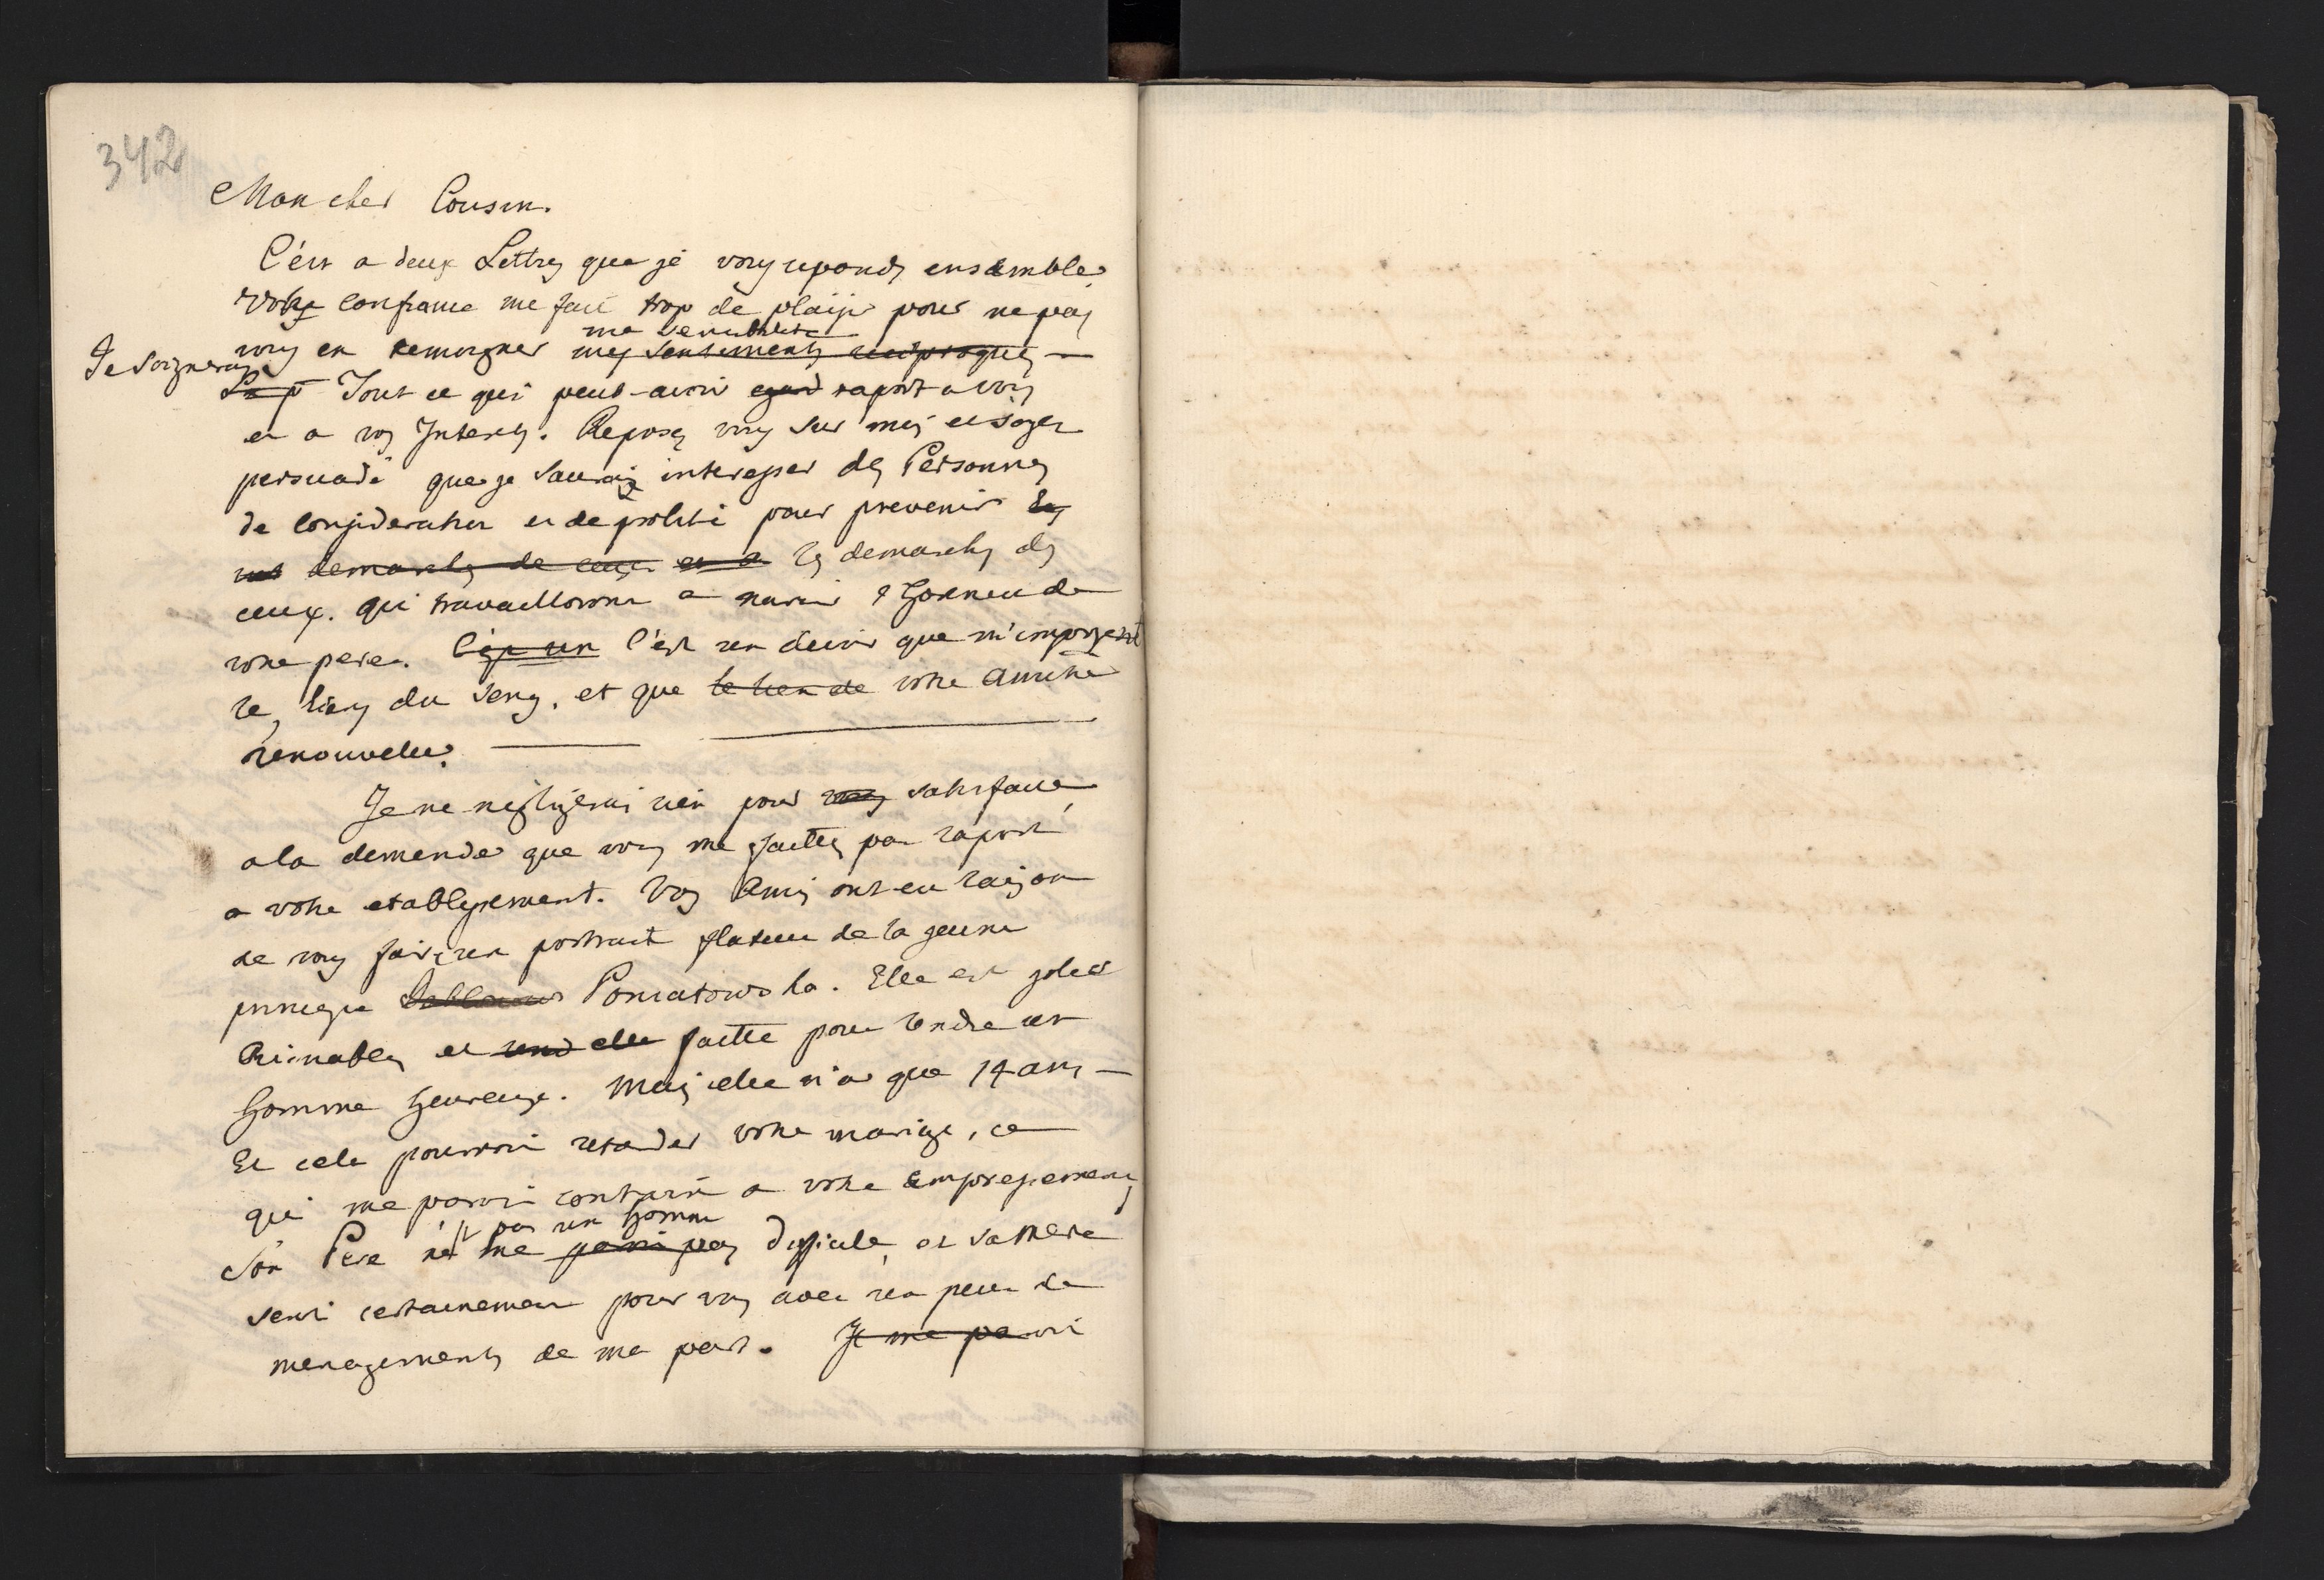 342
Mon cher Cousin.
C'est a deux Lettres que je vous reponds ensemble.
Votre confiance me fait trop de plaisir pour ne pas
ma sensibilité
vous en temoigner mes sentements reciproques —
Je soignerai
Tout ce qui peut-avoir egard raport a vous
et a vos Interets. Reposez vous sur moi et soyez
persuadé que je saurais interesser des Personnes
de consideration et de probité pour prevenir les
demarches de ceux et a les demarches des
ceux. qui travailleront a narir l'Honneur de
votre pere. C'est un C'est un devoir que m'imposent
les liens du Seng, et que le lien de votre Amitié
renouvelle.
Je ne negligerai rien pour vous satisfaire
a la demende que vous me faittes par raport
a votre etablissement. Vos Amis ont eu raison
de vous faire un portrait flateur de la jeune
princesse Poniatowska. Elle est jolie
Aimables et rend elle faitte pour rendre un
homme heureux. Mais elle n'a que 14 ans —
Et cela pourroit retarder votre mariage, ce
qui me paroit contraire a votre empressement
pas un homme
Son Pere n'est me paroit pas dificile, et sa Mere
sera certainement pour vous avec un peu de
menagements de ma part. Il me paroit